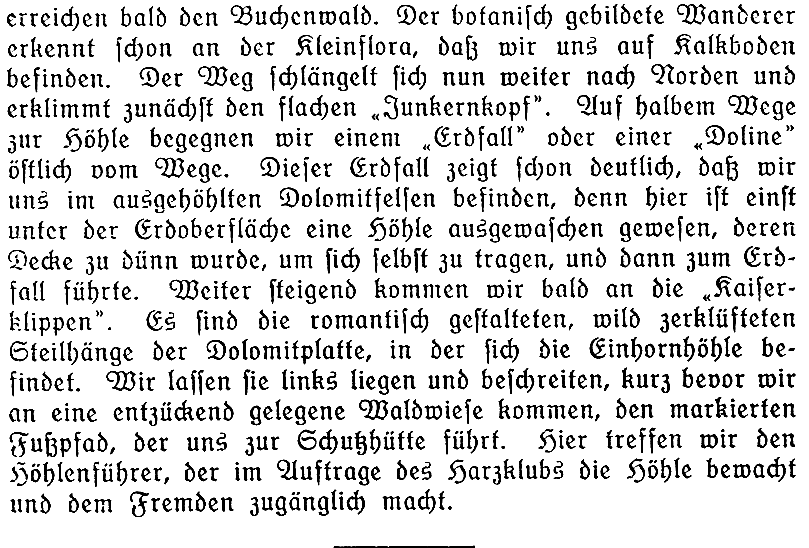 erreichen bald den Buchenwald. Der botanisch gebildete Wanderer
erkennt schon an der Kleinflora, daß wir uns auf Kalkboden
befinden. Der Weg schlängelt sich nun weiter nach Norden und
erklimmt zunächst den flachen „Junkernkopf“. Auf halbem Wege
zur Höhle begegnen wir einem „Erdfall“ oder einer „Doline“
östlich vom Wege. Dieser Erdfall zeigt schon deutlich, daß wir
uns im ausgehöhlten Dolomitfelsen befinden, denn hier ist einst
unter der Erdoberfläche eine Höhle ausgewaschen gewesen, deren
Decke zu dünn wurde, um sich selbst zu tragen, und dann zum Erd-
fall führte. Weiter steigend kommen wir bald an die „Kaiser-
klippen“. Es sind die romantisch gestalteten, wild zerklüfteten
Steilhänge der Dolomitplatte, in der sich die Einhornhöhle be-
findet. Wir lassen sie links liegen und beschreiten, kurz bevor wir
an eine entzückend gelegene Waldwiese kommen, den markierten
Fußpfad, der uns zur Schutzhütte führt. Hier treffen wir den
Höhlenführer, der im Auftrage des Harzklubs die Höhle bewacht
und dem Fremden zugänglich macht.